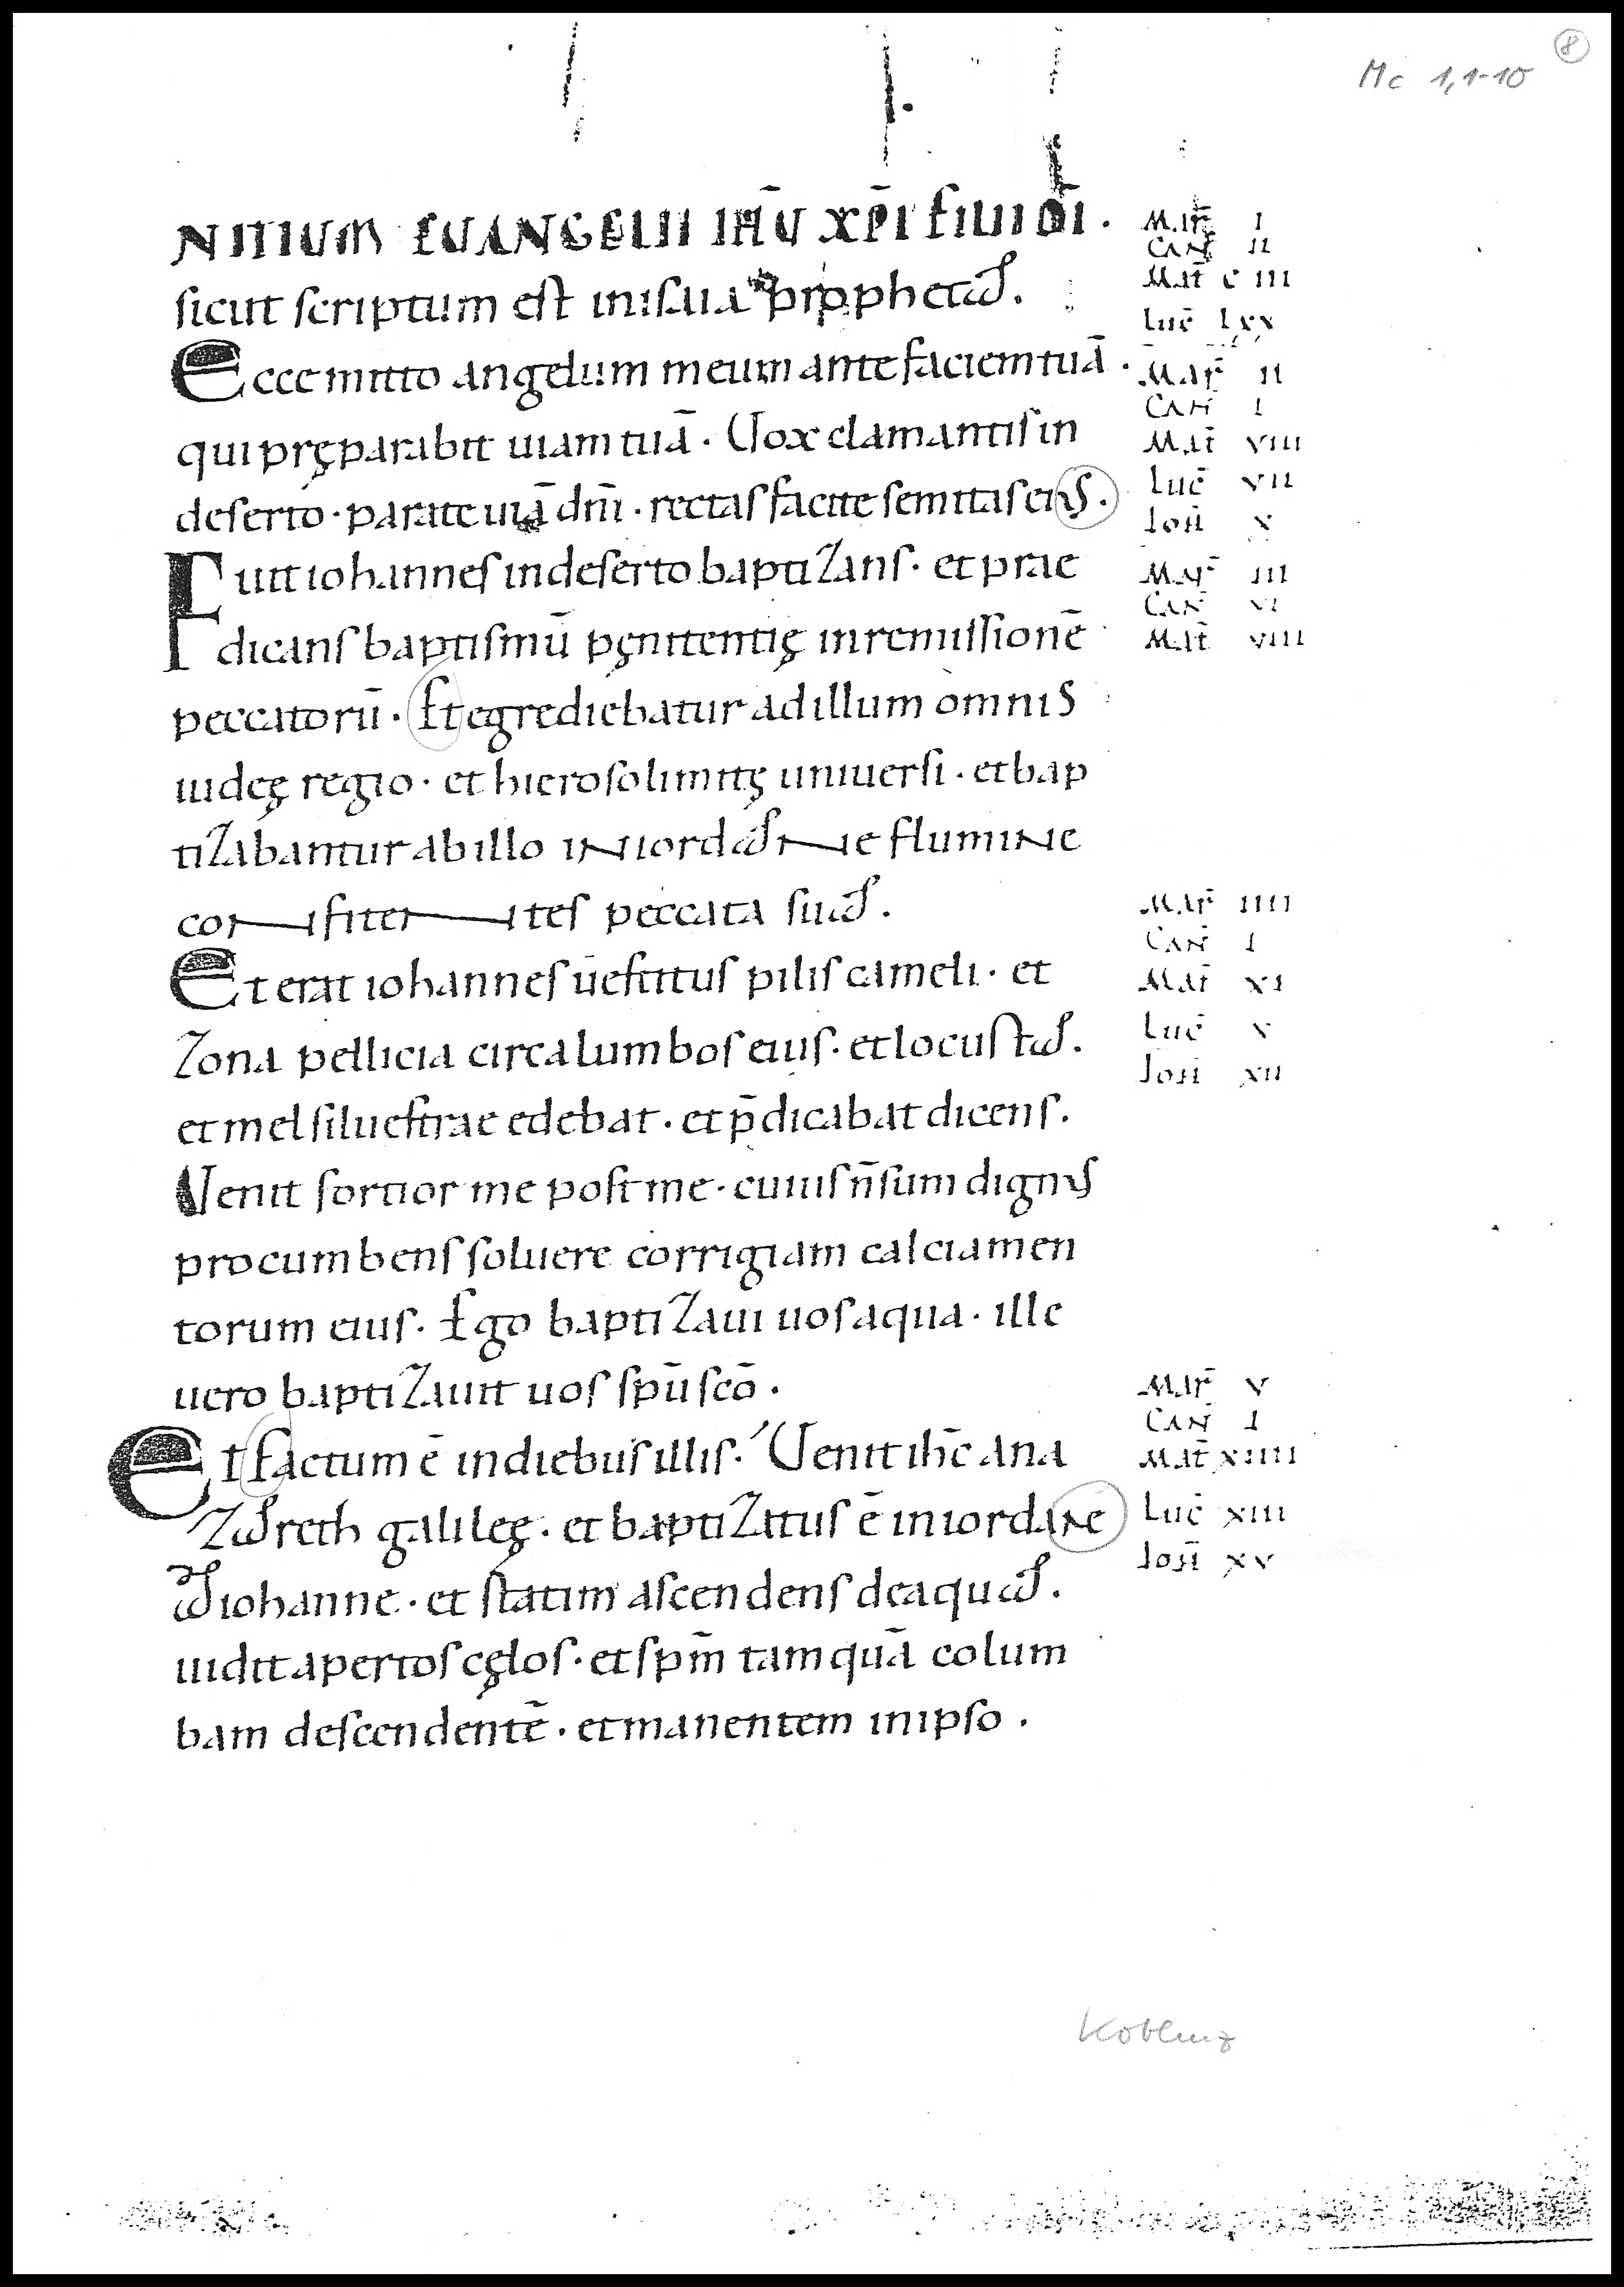 Mc 1,1-10
8
NITIUM EUANGELII IHŪ XP̄I FILII DĪ .
sicut scriptum est in isaia propheta .
Ecce mitto angelum meum ante faciem tuā .
qui pręparabit uiam tuā . Uox clamantis in
deserto · parate uiā dn̄i · rectas facite semitas eius .
Fuit iohannes in deserto baptizans · et prae
dicans baptismū pęnitentię in remissionē
peccatorū · Et egrediebatur ad illum omnis
iudęę regio · et hierosolimitę uniuersi · et bap
tizabantur ab illo in iordane flumine
confitentes peccata sua .
Et erat iohannes uestitus pilis cameli · et
zona pellicia circa lumbos eius · et locusta .
et mel siluestrae edebat · et p̄dicabat dicens .
Uenit fortior me post me · cuius n̄ sum dignus
procumbens soluere corrigiam calciamen
torum eius · Ego baptizaui uos aqua · ille
uero baptizauit uos sp̄u scō .
Et factum ē in diebus illis · Uenit ih̄c a na
zareth galileę · et baptizatus ē in iordane
a iohanne · et statim ascendens de aqua .
uidit apertos cęlos · et sp̄m tamquā colum
bam descendentē · et manentem in ipso .
Mar̄ I
CAN̄ II
Mat̄ C III
Luc̄ Lxx
Mar̄ II
CAN̄ I
Mat̄ VIII
Luc̄ VII
Ioh̄ X
Mar̄ III
CAN̄ VI
Mat̄ VIIII
Mar̄ IIII
CAN̄ I
Mat̄ XI
Luc̄ X
Ioh̄ XII
Mar̄ V
CAN̄ I
Mat̄ XIIII
Luc̄ XIII
Ioh̄ XV
Koblenz